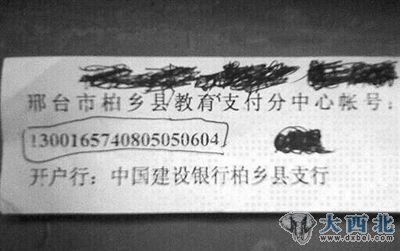 邢台市柏乡县教育支付分中心帐号:
1300165740805050604
开户行：中国建设银行柏乡县支行
大西北
www.dxbei.com